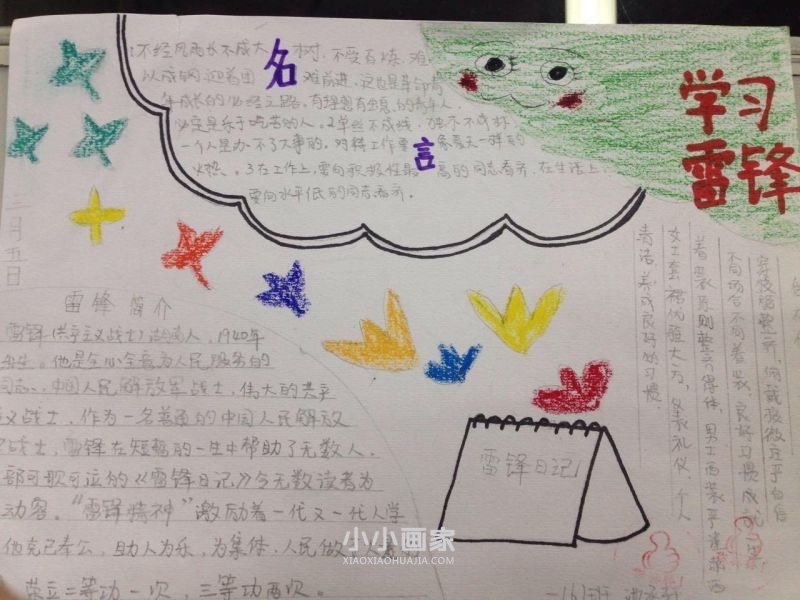 学习
雷锋
名
言
1不经风雨长不成大树,不受百炼,难
以成钢迎着困难前进,这也是革命青
年成长的必经之路,有理想有出息的青年人,
必定是乐于吃苦的人,2单丝不成线,独木不成林
一个人是办不了大事的。对待工作要象春天一样的
火热。3在工作上,要向积极性最高的同志看齐,在生活上,
要向水平低的同志看齐。
三月五日
雷锋简介
雷锋(共产主义战士)湖南人,1940年
出生。他是全心全意为人民服务的
同志、中国人民解放军战士,伟大的共产
主义战士,作为一名普通的中国人民解放
战士,雷锋在短暂的一生中帮助了无数人,
部可歌可泣的《雷锋日记》令无数读者为
动容。“雷锋精神”激励着一代又一代人学
他克己奉公,助人为乐,为集体,人民做
荣立二等功一次,三等功两次。
雷锋日记1
不同场合不同着装,良好习惯成就
着装原则整齐得体,男士西装
女士套裙优雅大方,外表礼仪,个人
清洁,养成良好的习惯
一(6)班
小小画家
XIAOXIAOHUAJIA.COM